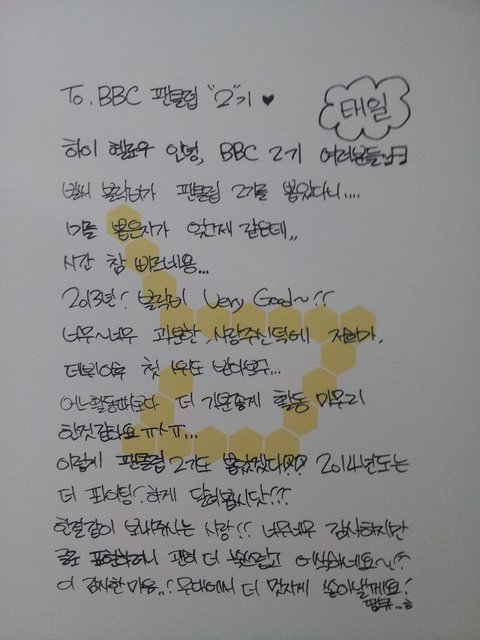 To. BBC 팬클럽 "2"기 ♥
태일
하이 헬로우 안녕, BBC 2기 여러분들
벌써 블락비가 팬클럽 2기를 뽑았다니....
1기를 뽑은지가 엊그제 같은데,,
시간 참 빠르네용...
2013년! 블락비 Very Good~!!
너무~너무 과분한 사랑주신덕에 저희가,
데뷔이후 첫 1위도 받아보구...
어느활동때보다 더 기분좋게 활동 마무리
한것같아요 ㅠㅅㅠ...
이렇게 팬클럽 2기도 뽑았겠다!?? 2014년도는
더 파이팅!하게 달려봅시닷!??
한결같이 보내주시는 사랑!! 너무너무 감사하지만
글로 표현하려니 괜히 더 쑥스럽고 어색하네요~!?
이 감사한 마음..! 무대에서 더 멋지게 쏟아낼게요!
땡큐...